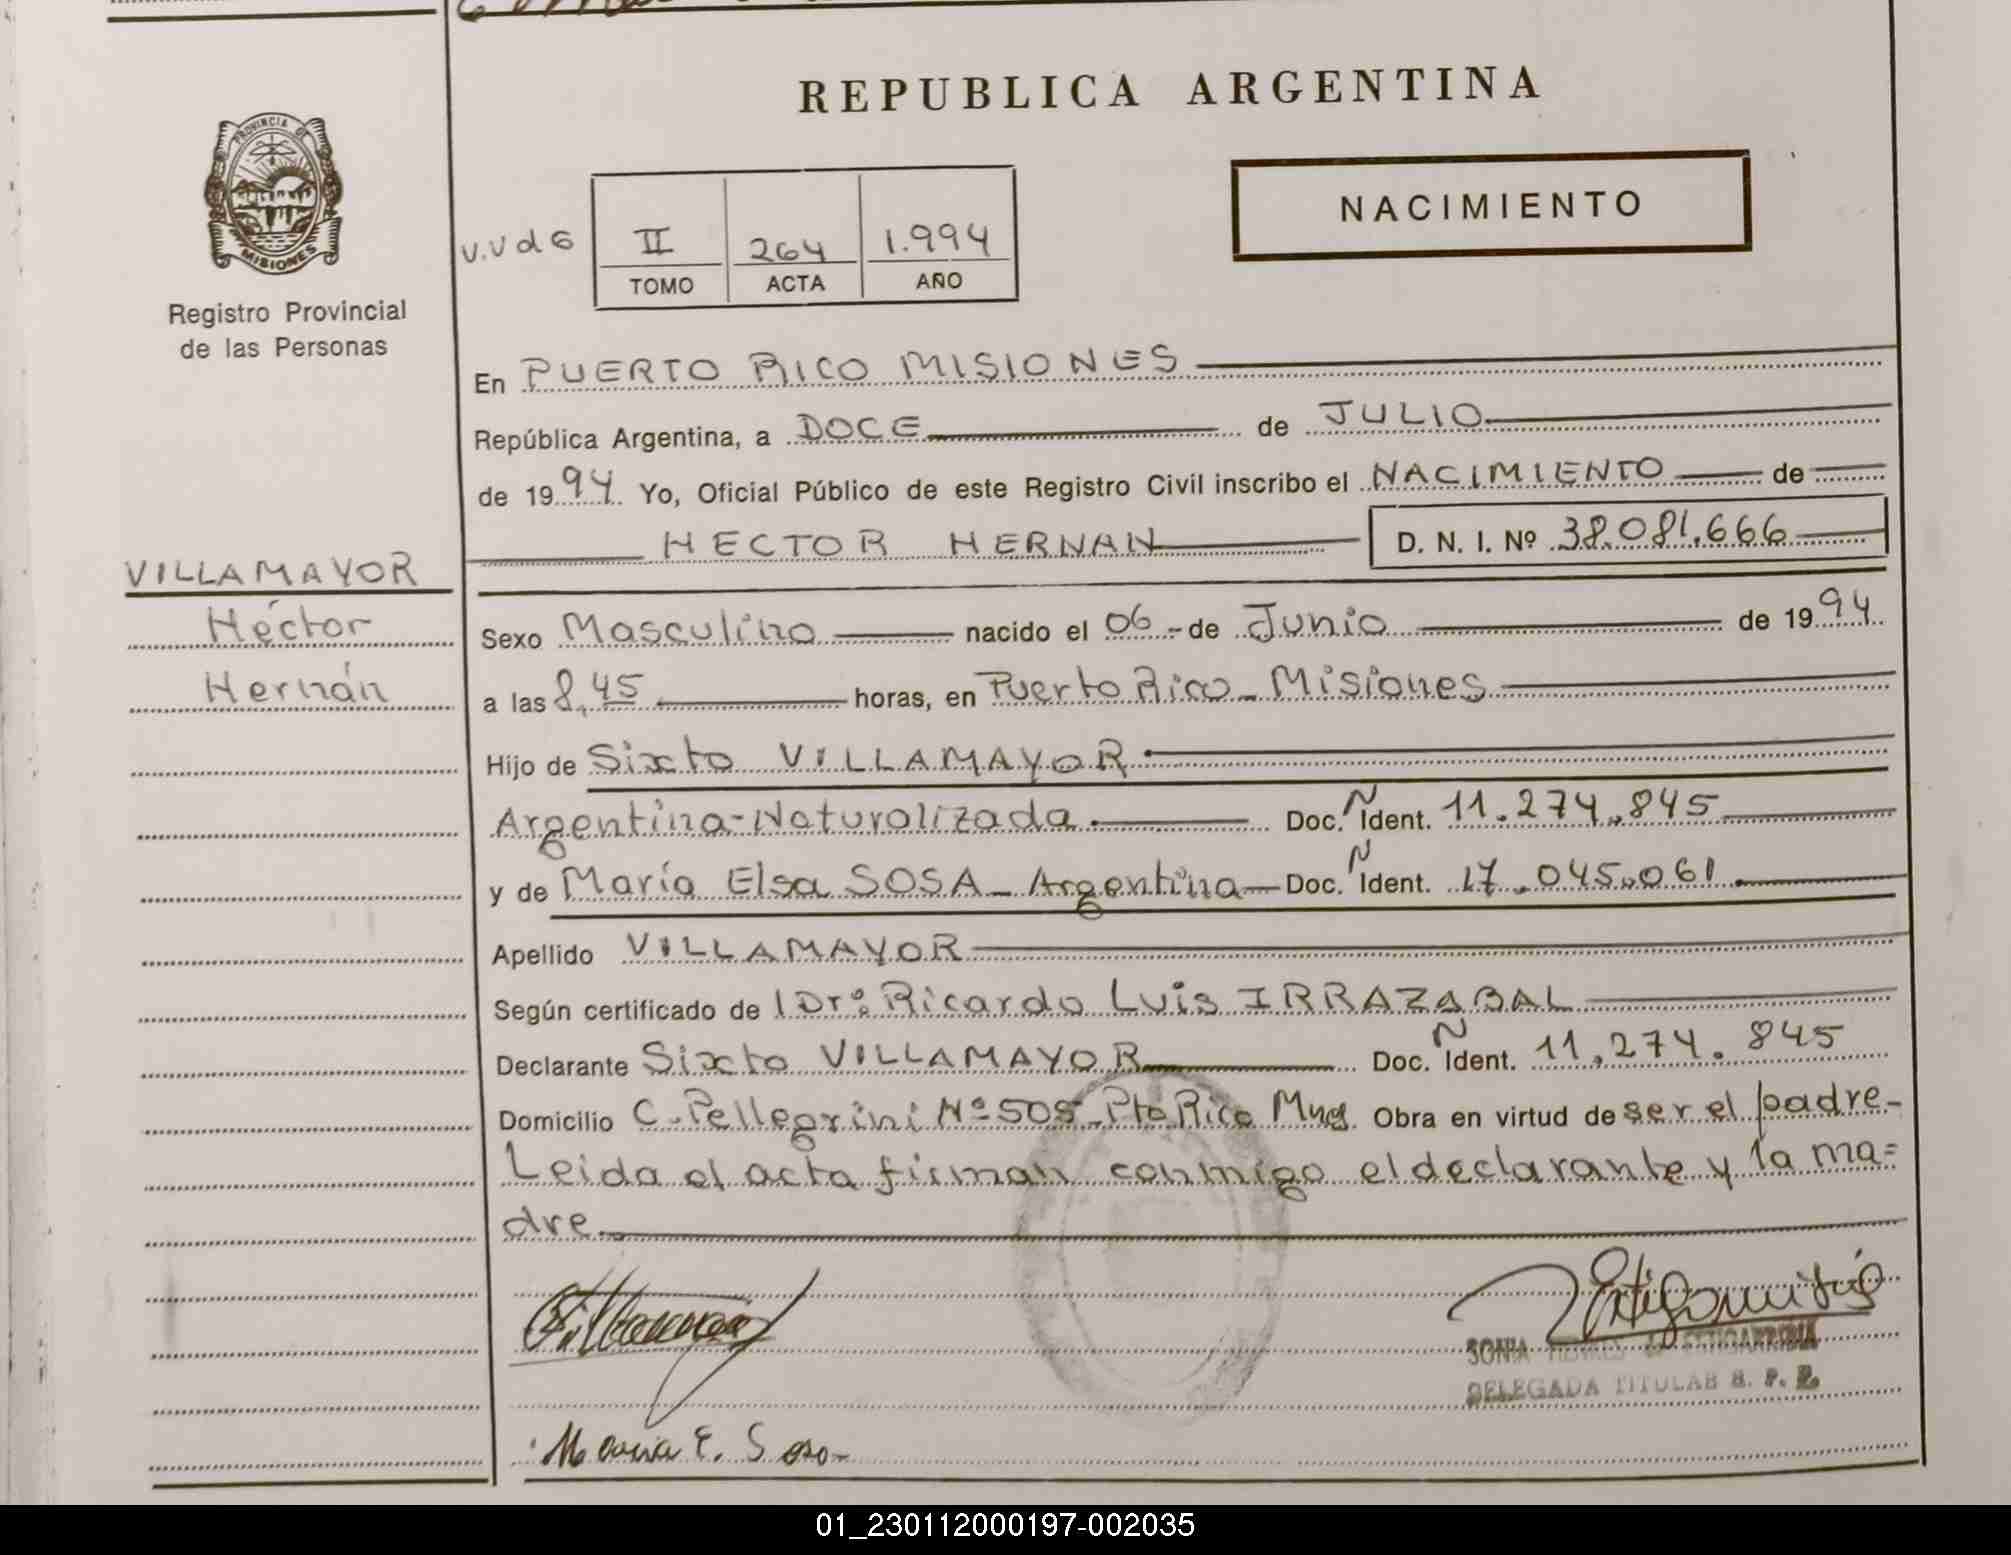 REPUBLICA ARGENTINA
PROVINCIA DE
MISIONES
Registro Provincial
de las Personas
NACIMIENTO
v.v d 6
II 264 1.994
TOMO ACTA AÑO
En PUERTO RICO MISIONES
República Argentina, a DOCE de JULIO
de 1994 Yo, Oficial Público de este Registro Civil inscribo el NACIMIENTO de
HECTOR HERNAN D. N. I. Nº 38.081.666
VILLAMAYOR
Héctor
Hernán
Sexo Masculino nacido el 06 - de Junio de 1994
a las 8,45 horas, en Puerto Rico - Misiones
Hijo de Sixto VILLAMAYOR
Argentina-Naturalizada Doc. Ñ Ident. 11.274.845
y de María Elsa SOSA - Argentina - Doc. Ñ Ident. 17.045.061
Apellido VILLAMAYOR
Según certificado de l Dr: Ricardo Luis IRRAZABAL
Declarante Sixto VILLAMAYOR Doc. Ñ Ident. 11.274.845
Domicilio C. Pellegrini Nº 505 - Pto Rico Mnes. Obra en virtud de ser el padre-
Leida el acta firman conmigo el declarante y la ma=
dre
SONIA
DELEGADA TITULAR R. P. P.
Maria E. Sosa
01_230112000197-002035